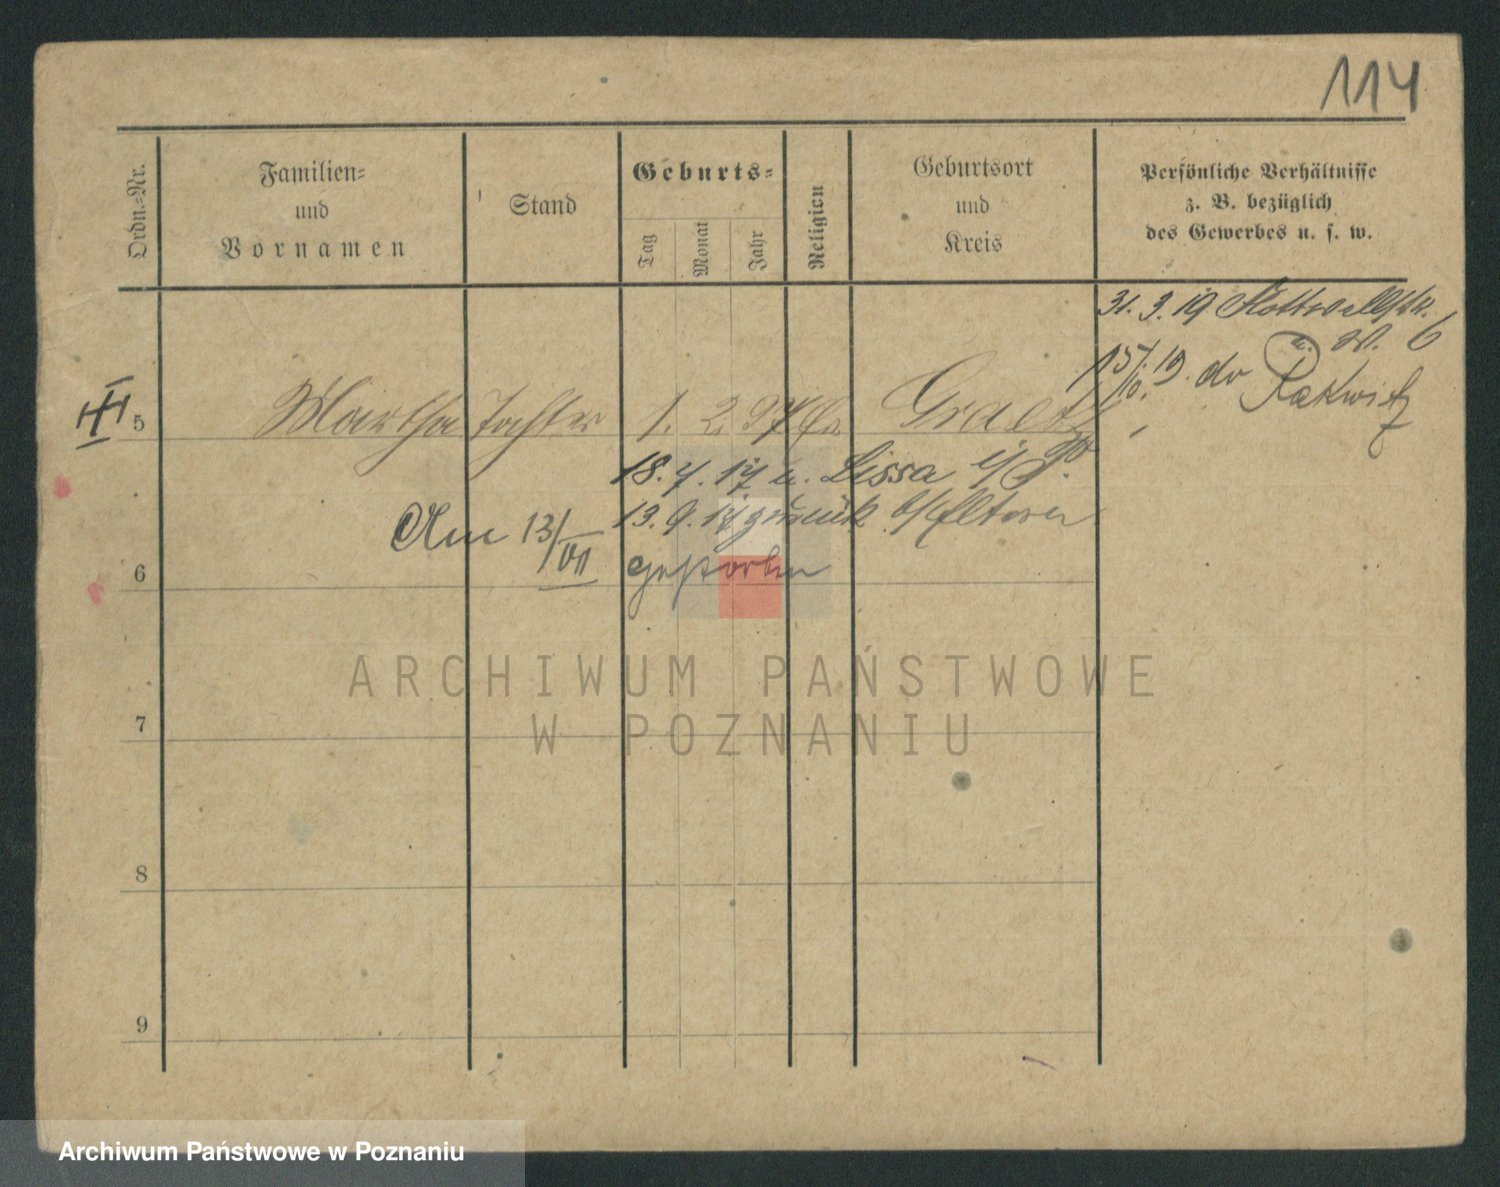 114
Ordn.-Nr.
Familien-
und
Vornamen
Stand
Geburts-
Tag
Monat
Jahr
Religion
Geburtsort
und
Kreis
Persönliche Verhältnisse
z. B. bezüglich
des Gewerbes u. s. w.
31. 3. 19
W. 6
15/10. 19. do Rakwitz
5 Martha Tochter 1. 2. 97 Graetz
18. 7. 17 n. Lissa i/P.
13. 9. 17 zurück b/Eltern
Am 13/VII gestorben
6
7
8
9
ARCHIWUM PAŃSTWOWE
W POZNANIU
Archiwum Państwowe w Poznaniu